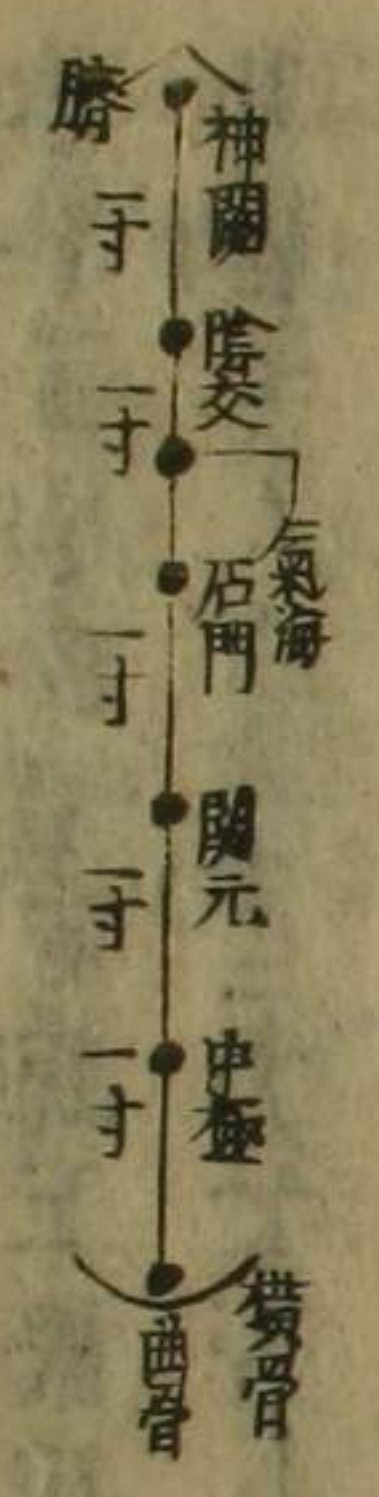 臍
神闕
一寸
陰交
一寸
氣海
石門
一寸
關元
一寸
中極
一寸
橫骨
曲骨